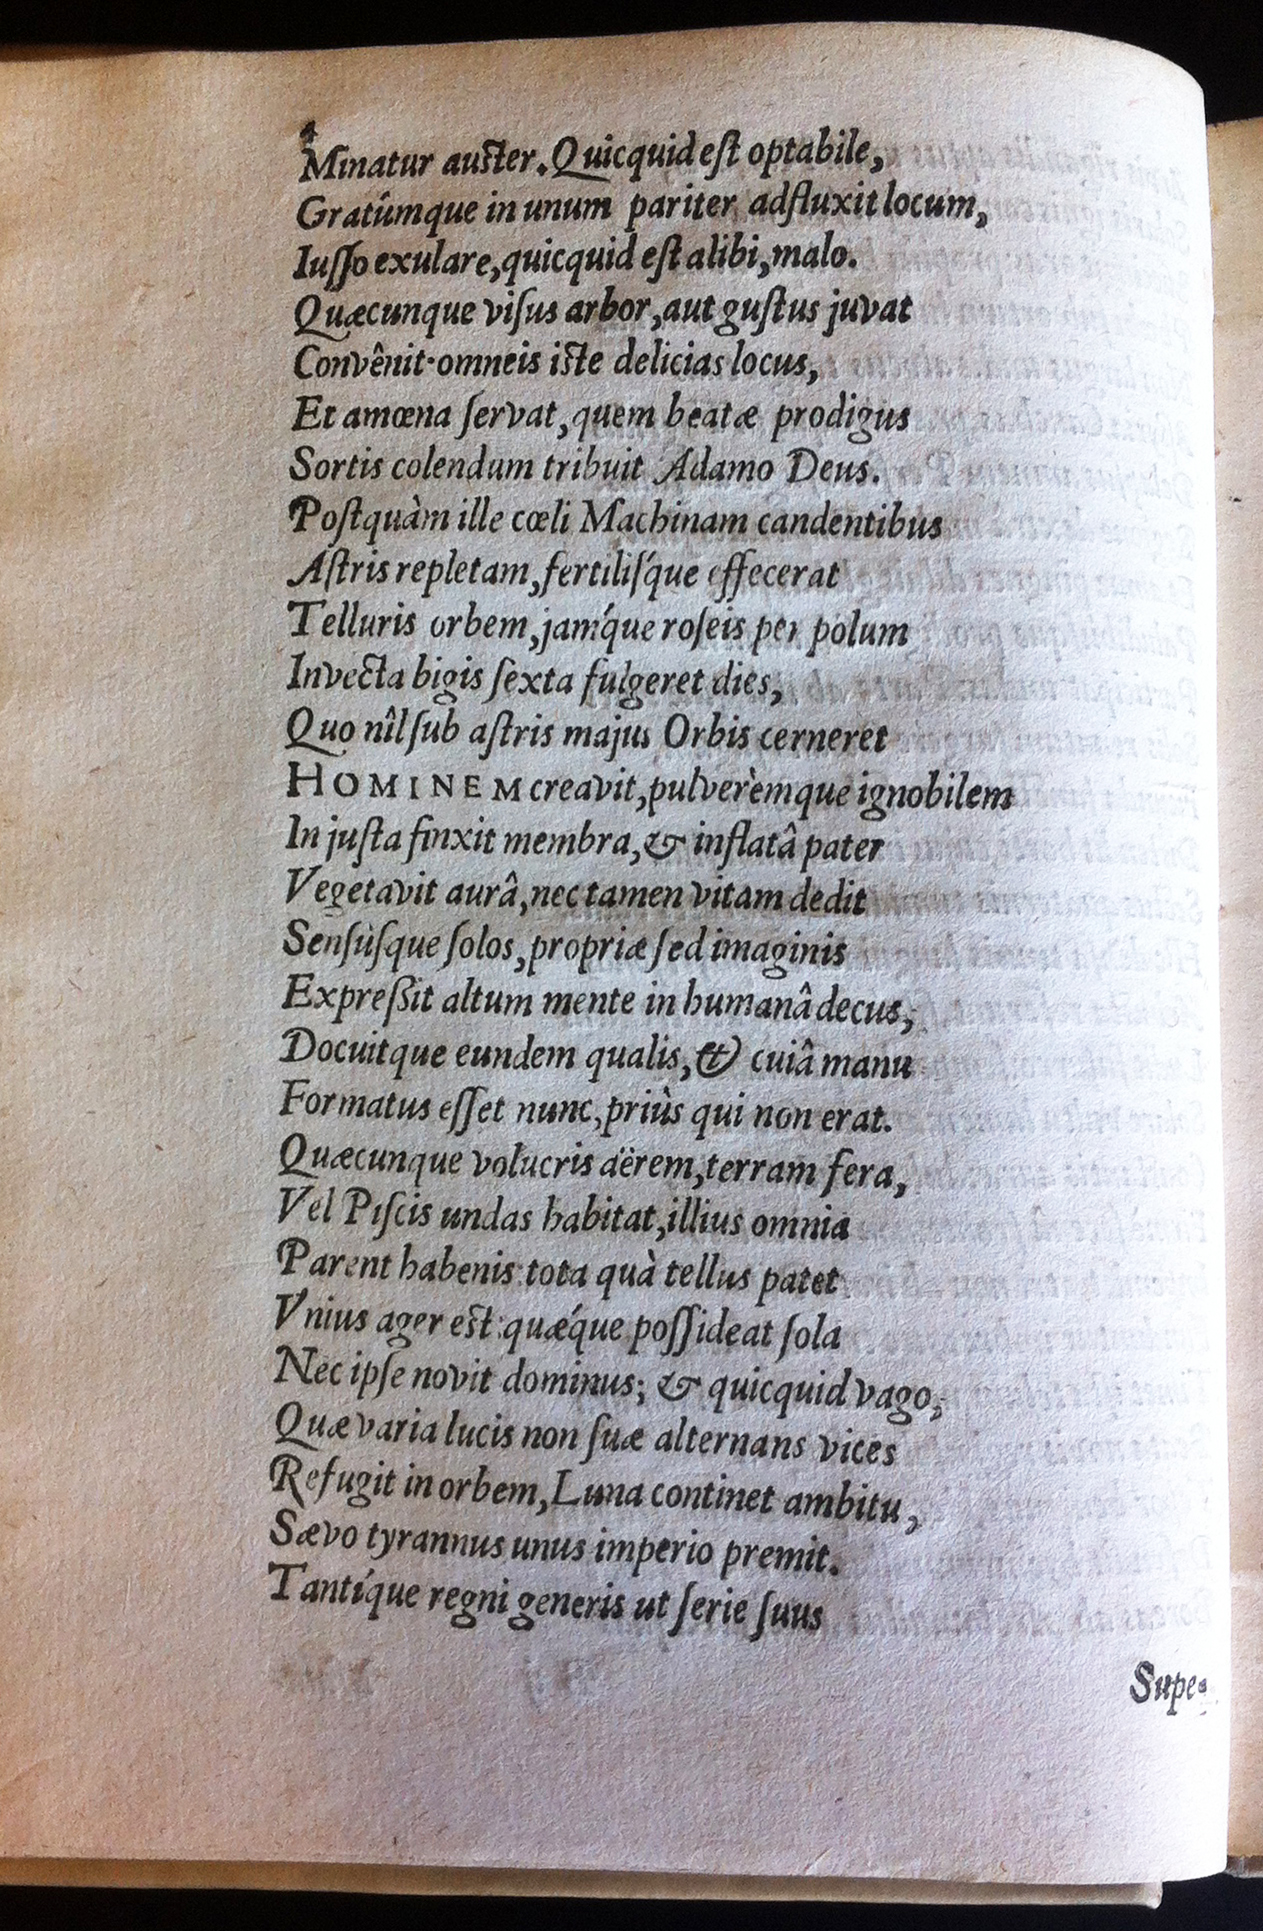 4
Minatur auster. Quicquid est optabile,
Gratûmque in unum pariter adfluxit locum,
Iusſo exulare, quicquid eſt alibi, malo.
Quæcunque viſus arbor, aut guſtus juvat
Convênit·omneis iste delicias locus,
Et amœna ſervat, quem beatæ prodigus
Sortis colendum tribuit Adamo Deus.
Poſtquàm ille cœli Machinam candentibus
Aſtris repletam, fertiliſq́ue effecerat
Telluris orbem, jamq́ue roſeis per polum
Invecta bigis ſexta fulgeret dies,
Quo nîl ſub aſtris majus Orbis cerneret
HOMINEM creavit, pulverèmque ignobilem
In juſta finxit membra, & inflatâ pater
Vegetavit aurâ, nec tamen vitam dedit
Senſùſque ſolos, propriæ ſed imaginis
Expreßit altum mente in humanâ decus,
Docuitque eundem qualis, & cuiâ manu
Formatus eſſet nunc, priùs qui non erat.
Quæcunque volucris aërem, terram fera,
Vel Piſcis undas habitat, illius omnia
Parent habenis: tota quà tellus patet
Vnius ager est: quæq́ue poſſideat ſola
Nec ipſe novit dominus; & quicquid vago,
Quæ varia lucis non ſuæ alternans vices
Refugit in orbem, Luna continet ambitu,
Sævo tyrannus unus imperio premit.
Tantíque regni generis ut ſerie ſuus
Supe-